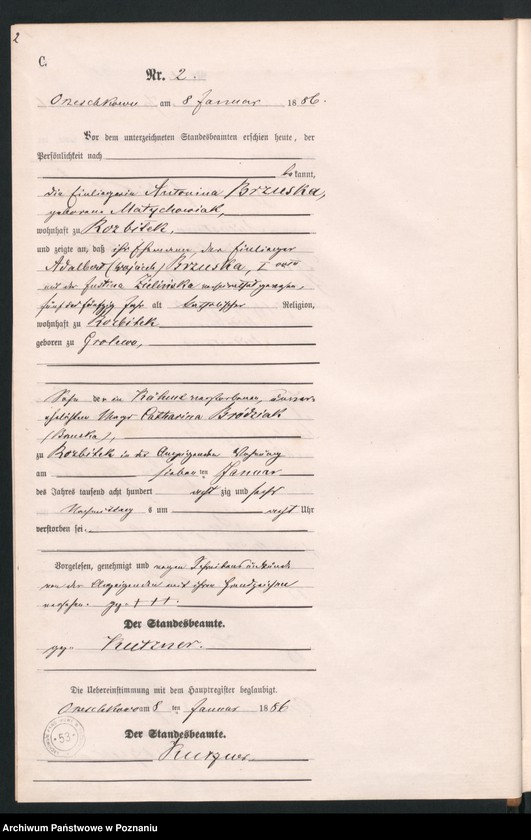 2
C.
Nr. 2.
Orzeschkowo am 8 Januar 1886.
Vor dem unterzeichneten Standesbeamten erschien heute, der
Persönlichkeit nach
bekannt,
die Einliegerin Antonina Brzuska,
geborene Matychowiak,
wohnhaft zu Rozbitek,
und zeigte an, daß ihr Ehemann, der Einlieger
Adalbert (Wojciech) Brzuska, I
mit der Justina Zielińska verheirathet gewesen,
fünf und fünfzig Jahr alt katholischer Religion,
wohnhaft zu Rozbitek
geboren zu Grolewo,
Sohn der in verstorbenen,
ehelichten Magd Catharina Brodziak
zu Rozbitek in der Anzeigenden Wohnung
am sieben ten Januar
des Jahres tausend acht hundert acht zig und sechs
Nachmittag s um acht Uhr
verstorben sei.
Vorgelesen, genehmigt und wegen Schreibensunkunde
von der Anzeigenden mit ihrem Handzeichen
versehen. gez. + + +.
Der Standesbeamte.
gez. Kutzner.
Die Uebereinstimmung mit dem Hauptregister beglaubigt.
Orzeschkowo am 8 ten Januar 1886
Der Standesbeamte.
Kutzner
53
Archiwum Państwowe w Poznaniu